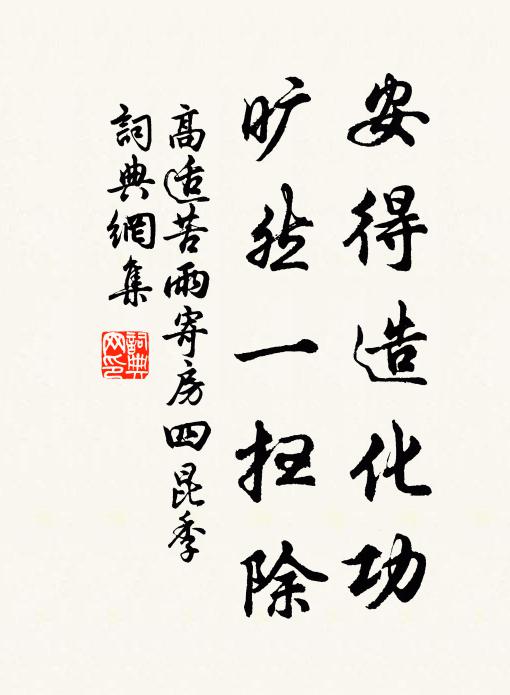 安得造化功
旷然一扫除
高适苦雨寄房四昆季
詞典網集
詞典網印